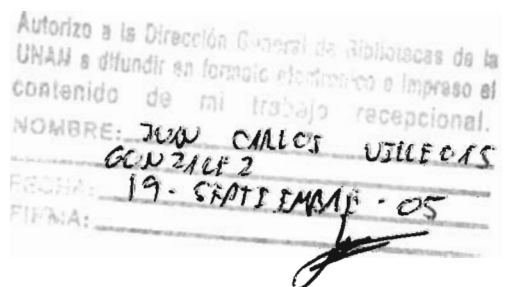 Autorizo a la Dirección General de Bibliotecas de la
UNAM a difundir en formato electrónico e impreso el
contenido de mi trabajo recepcional.
NOMBRE: JUAN CARLOS VILLEGAS
GONZALEZ
FECHA: 19 - SEPTIEMBRE - 05
FIRMA: